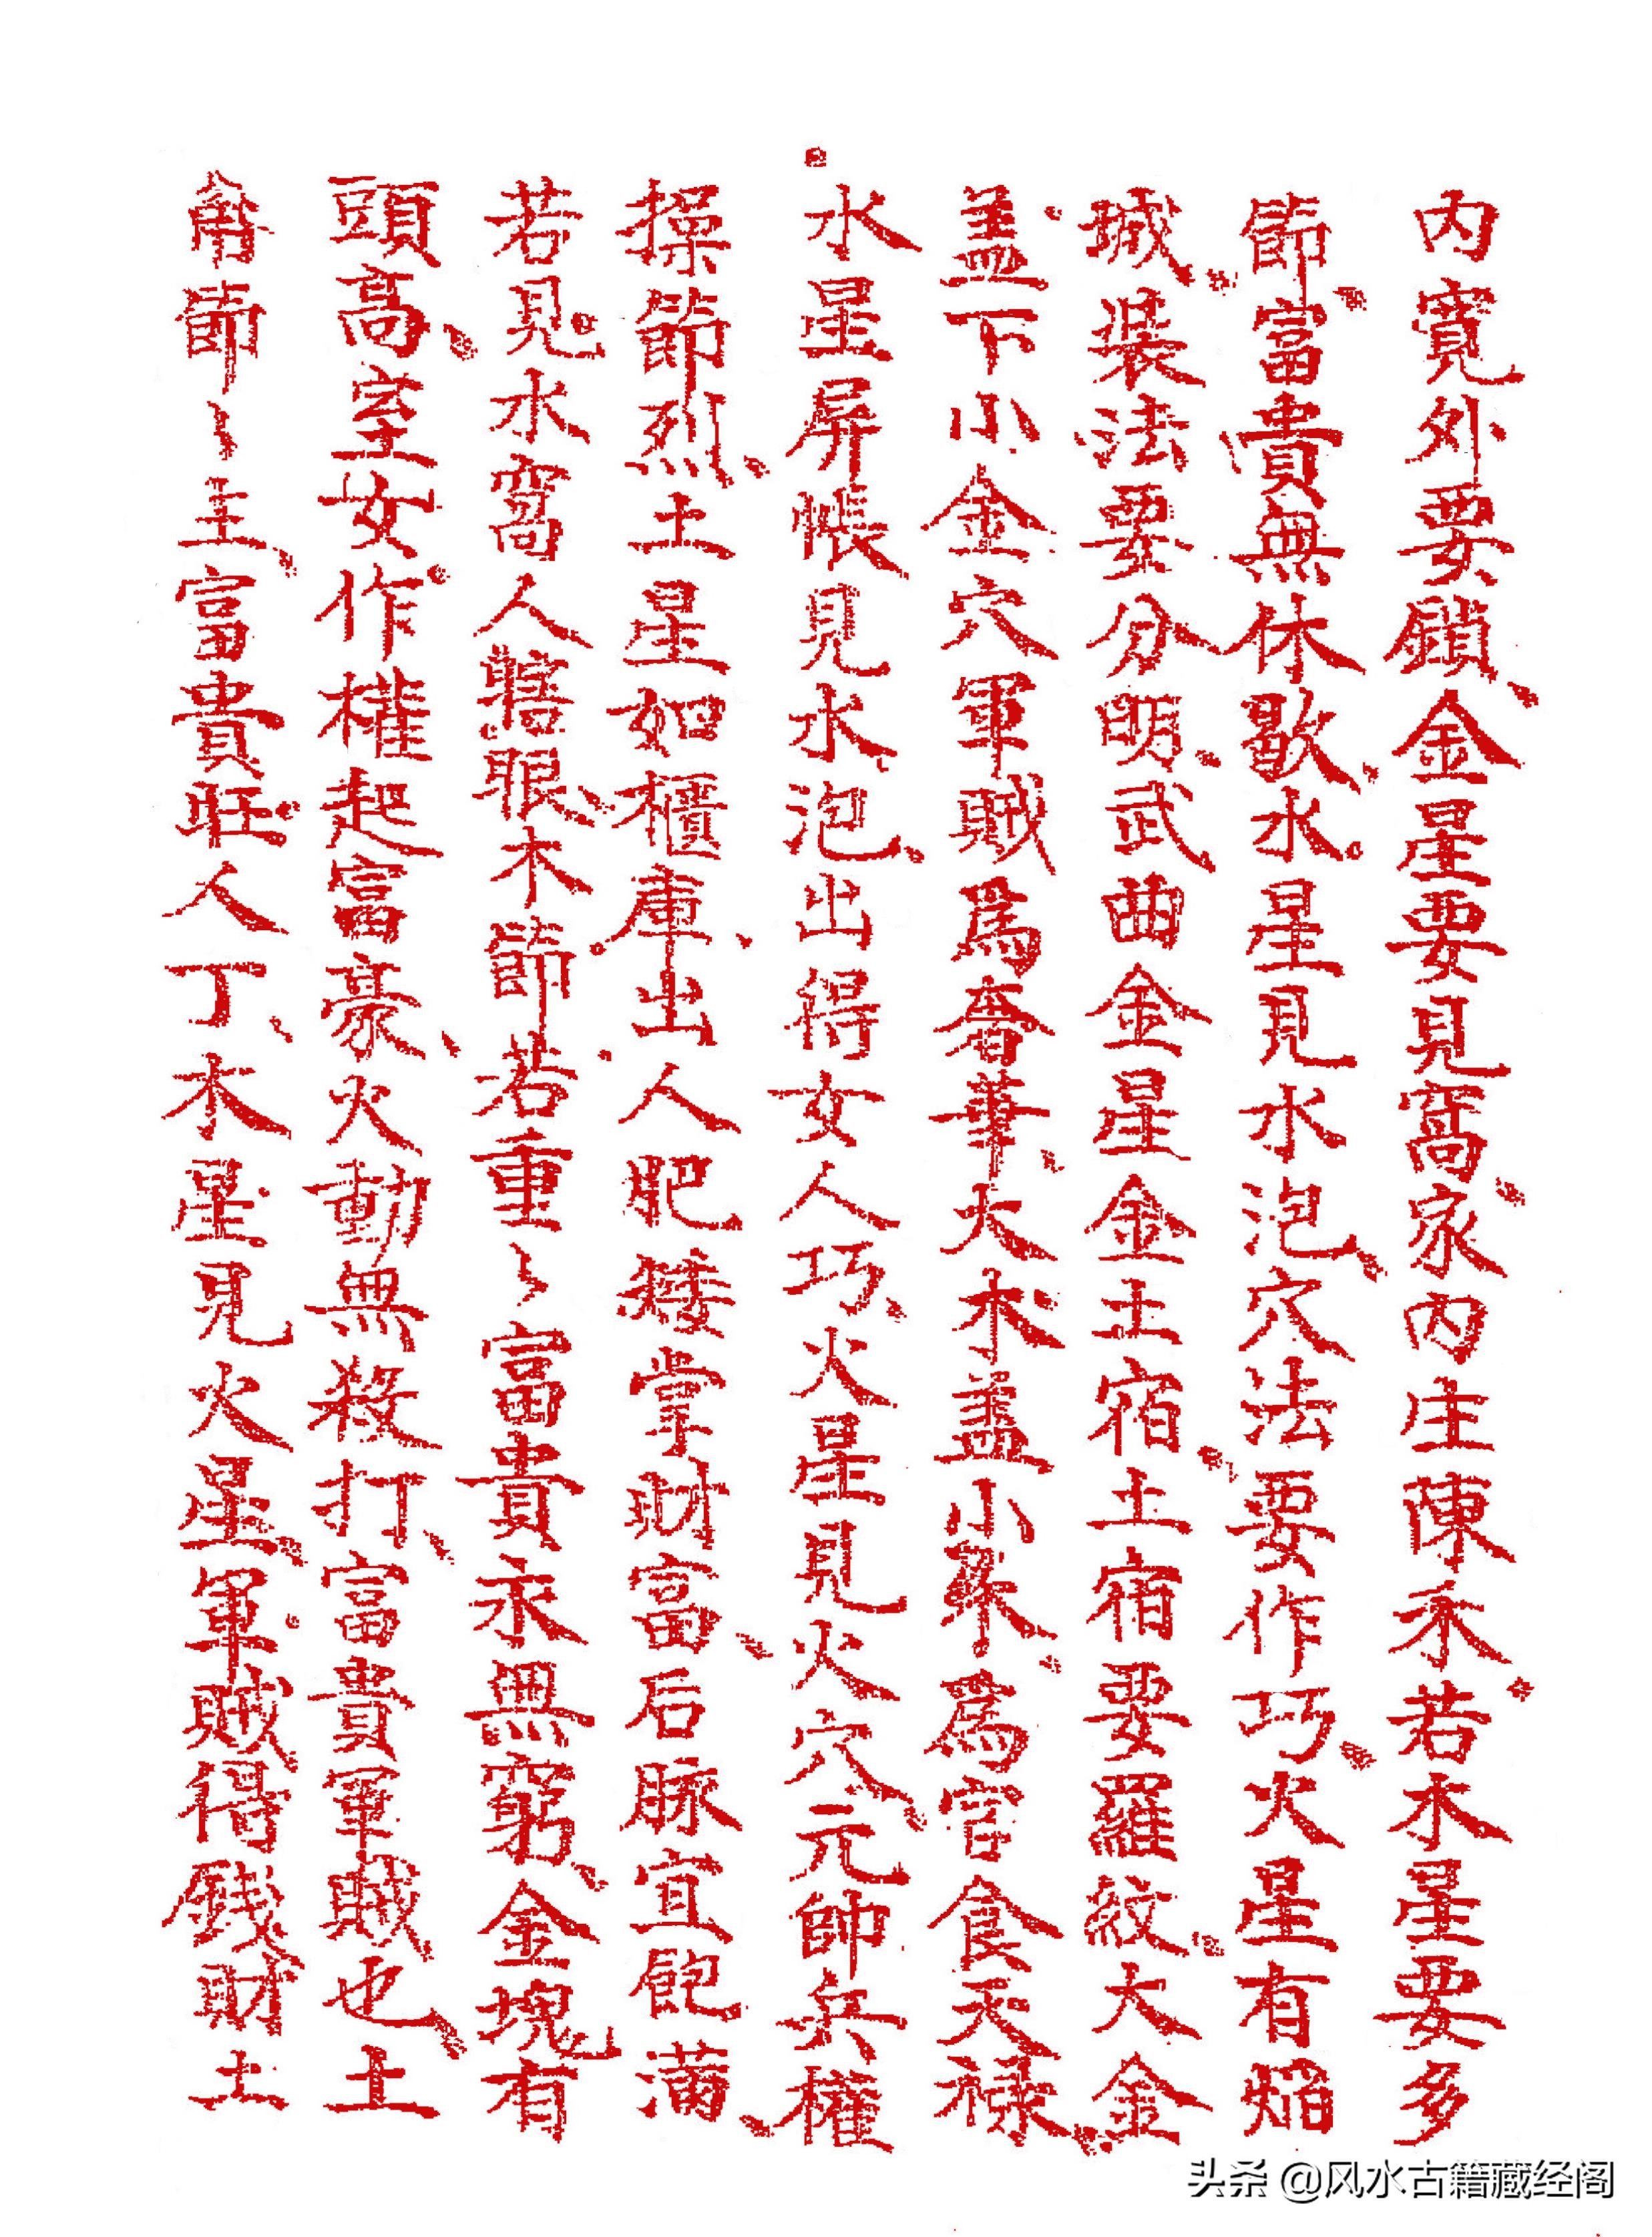 內寬外要鎖金星要見窩家內庄陳禾若木星要多
節富貴無休歇水星見水泡穴法要作巧火星有焰
城裝法要分明武曲金星金土宿土宿要羅紋大金
盖下小金穴軍賊為奢華大木盖小木為官食天祿
水星屏帳見水泡出得女人巧火星見火穴元帥兵權
操節烈土星如櫃庫出人肥矮掌財富后脉宜飽滿
若見水窩人瞎眼木節若重〻富貴永無窮金塊有
頭高室女作權起富豪火動無殺打富貴軍賊也土
角節〻主富貴旺人丁木星見火星軍賊得錢財土
头条 @风水古籍藏经阁